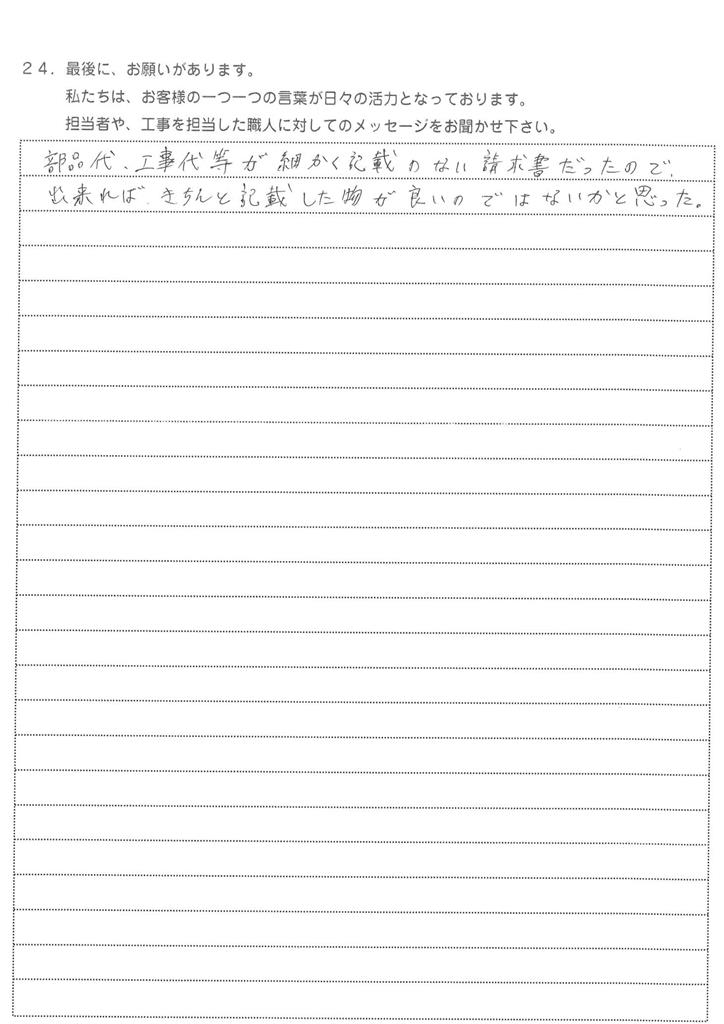 24．最後に、お願いがあります。
私たちは、お客様の一つ一つの言葉が日々の活力となっております。
担当者や、工事を担当した職人に対してのメッセージをお聞かせ下さい。
部品代、工事代等が細かく記載のない請求書だったので、
出来れば、きちんと記載した物が良いのではないかと思った。